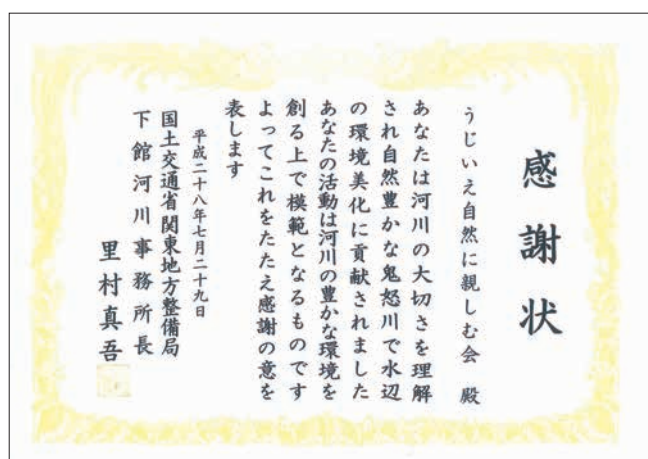 感謝状
うじいえ自然に親しむ会 殿
あなたは河川の大切さを理解
され自然豊かな鬼怒川で水辺
の環境美化に貢献されました
あなたの活動は河川の豊かな環境を
創る上で模範となるものです
よってこれをたたえ感謝の意を
表します
平成二十八年七月二十九日
国土交通省関東地方整備局
下館河川事務所長
里村真吾